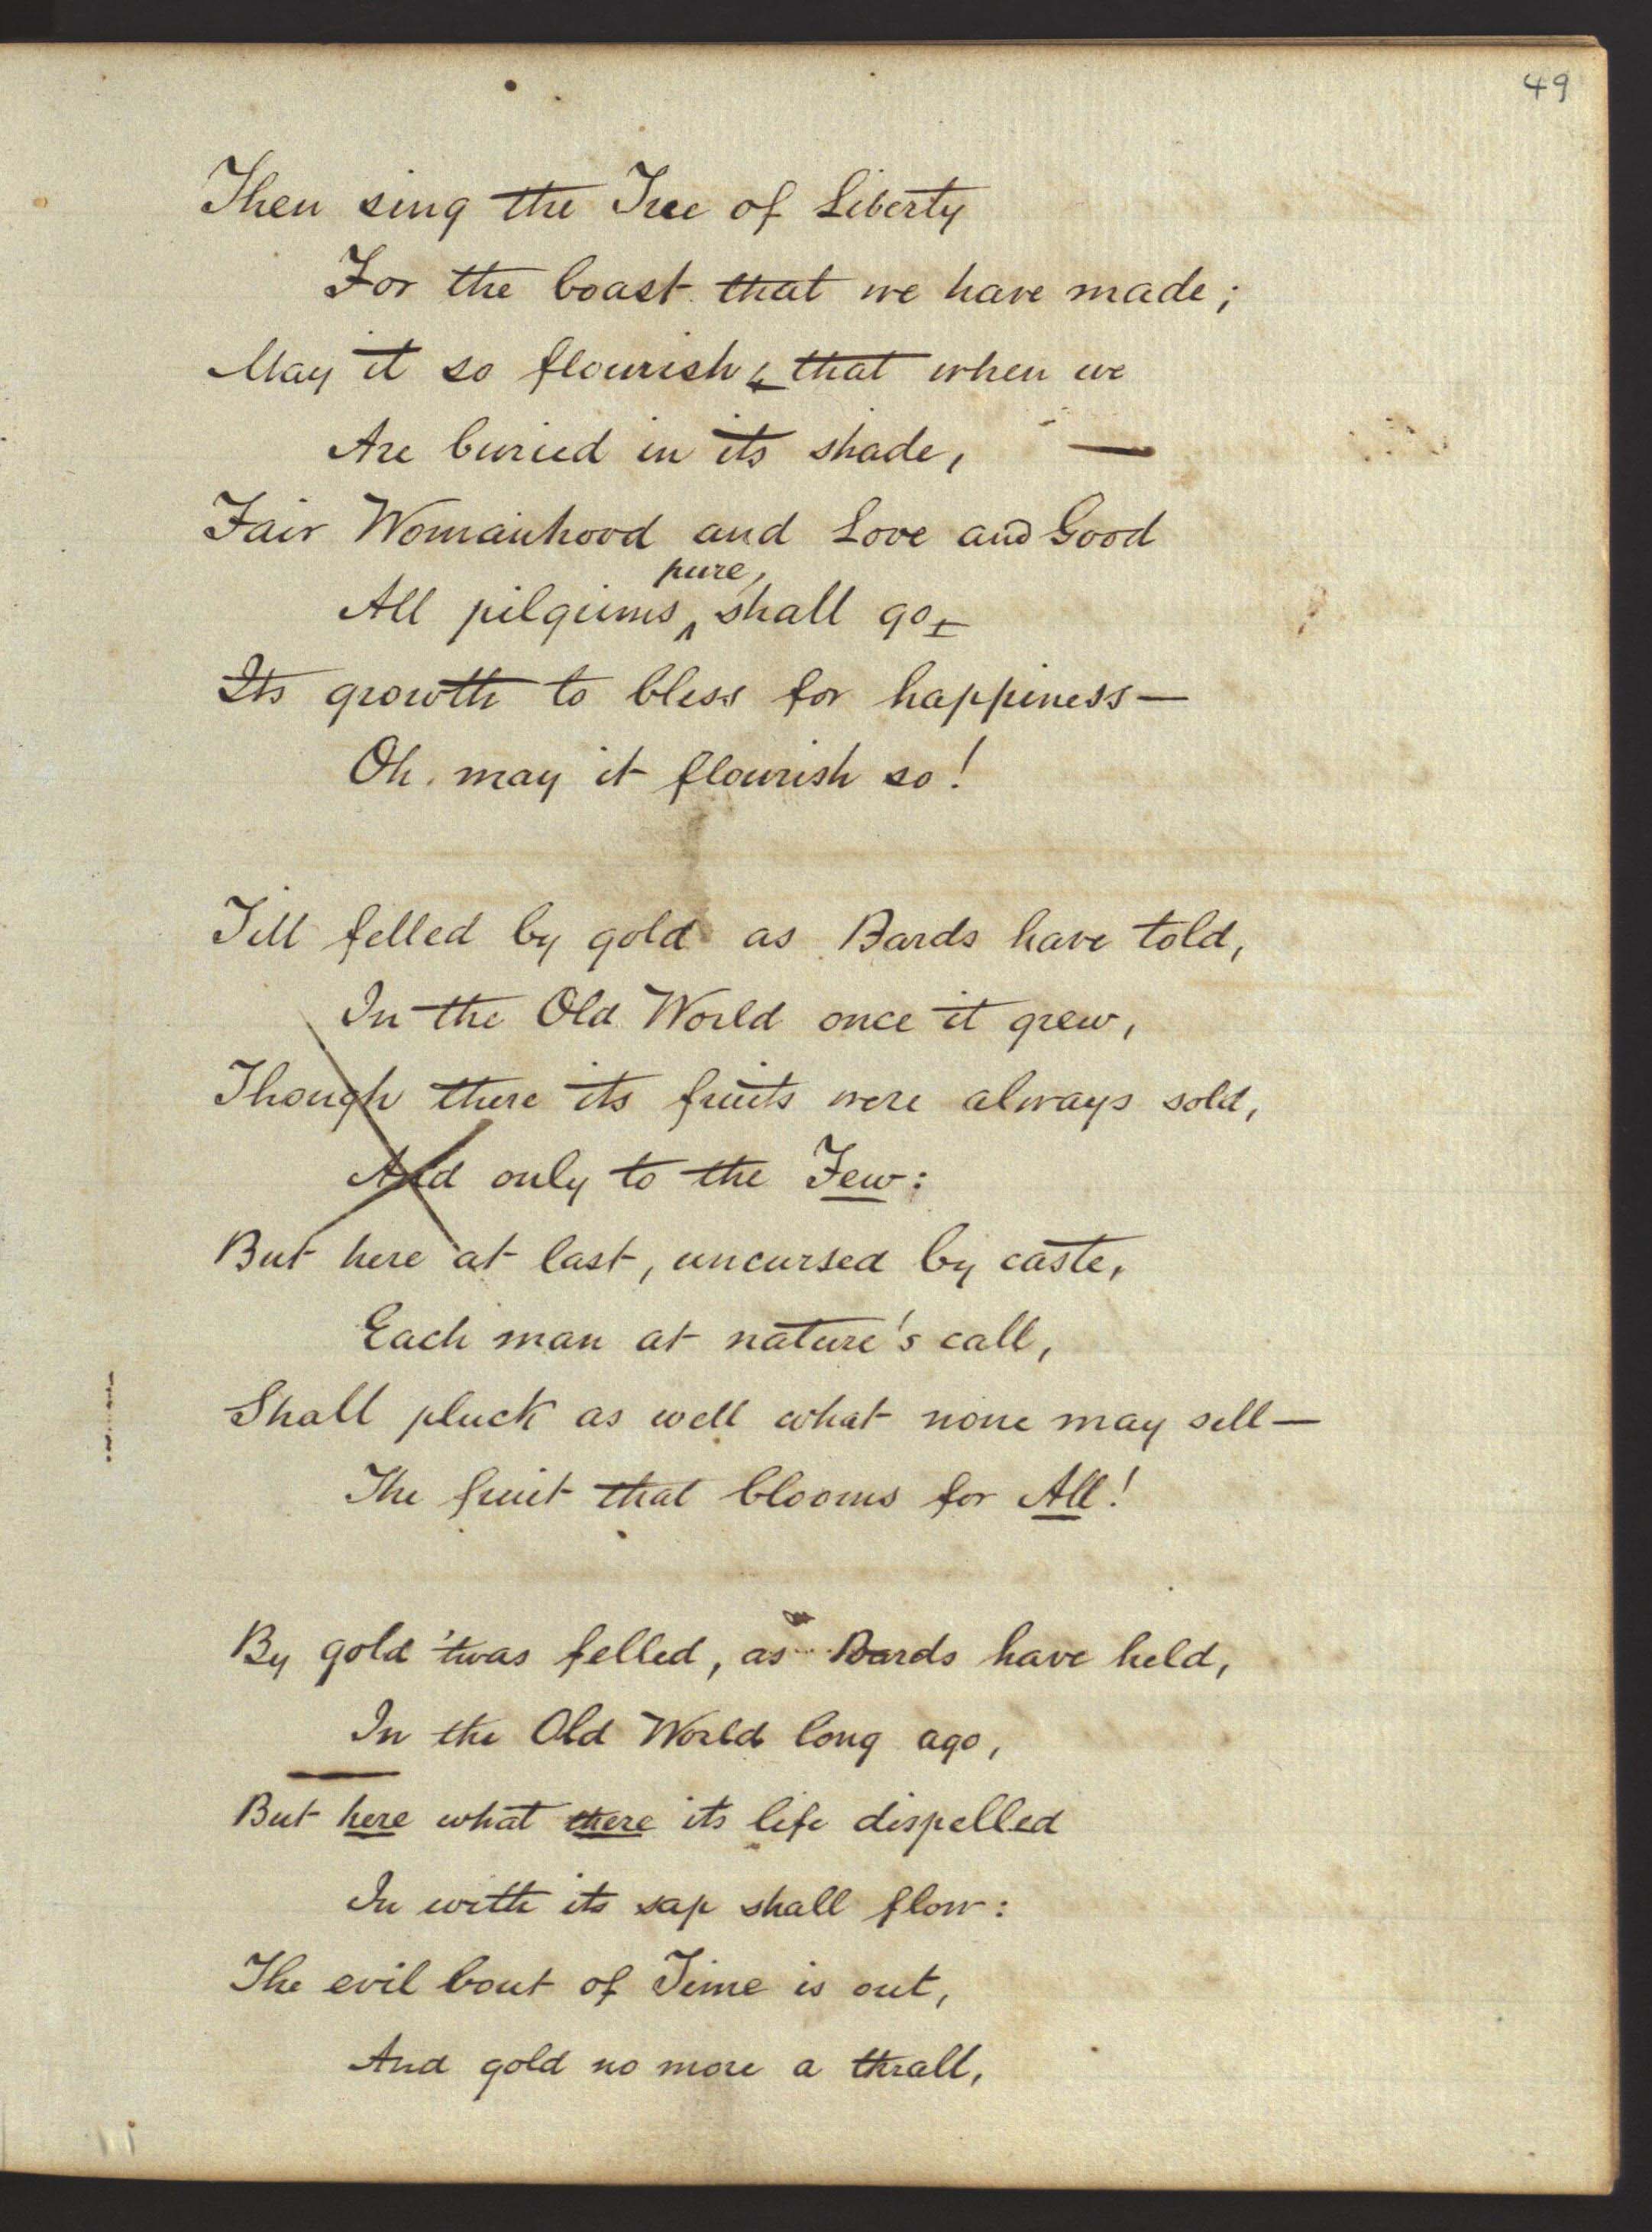 49
Then sing the Tree of Liberty
For the boast that we have made;
May it so flourish, that when we
Are buried in its shade, —
Fair Womanhood and Love and Good
pure,
All pilgrims ‸ shall go
Its growth to bless for happiness—
Oh. may it flourish so!
Till felled by gold as Bards have told,
In the Old World once it grew,
Though there its fruits were always sold,
And only to the Few:
But here at last, uncursed by caste,
Each man at nature's call,
Shall pluck as well what none may sell—
The fruit that blooms for All!
By gold 'twas felled, as Bards have held,
In the Old World long ago,
But here what there its life dispelled
In with its sap shall flow:
The evil bout of Time is out,
And gold no more a thrall,